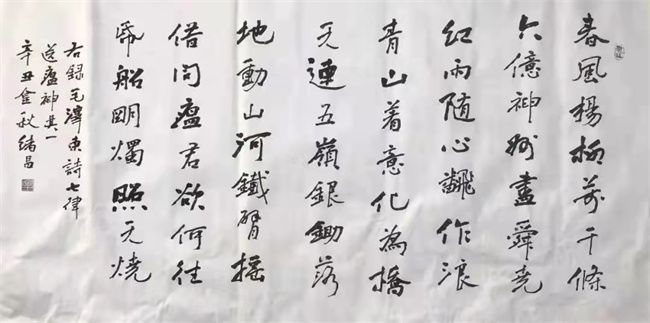 春風楊柳萬千條
六億神州盡舜堯
紅雨隨心飜作浪
青山着意化為橋
天連五嶺銀鋤落
地動山河鐵臂搖
借問瘟君欲何往
帋船明燭照天燒
右錄毛澤東詩七律
送瘟神其一
辛丑金秋緒昌